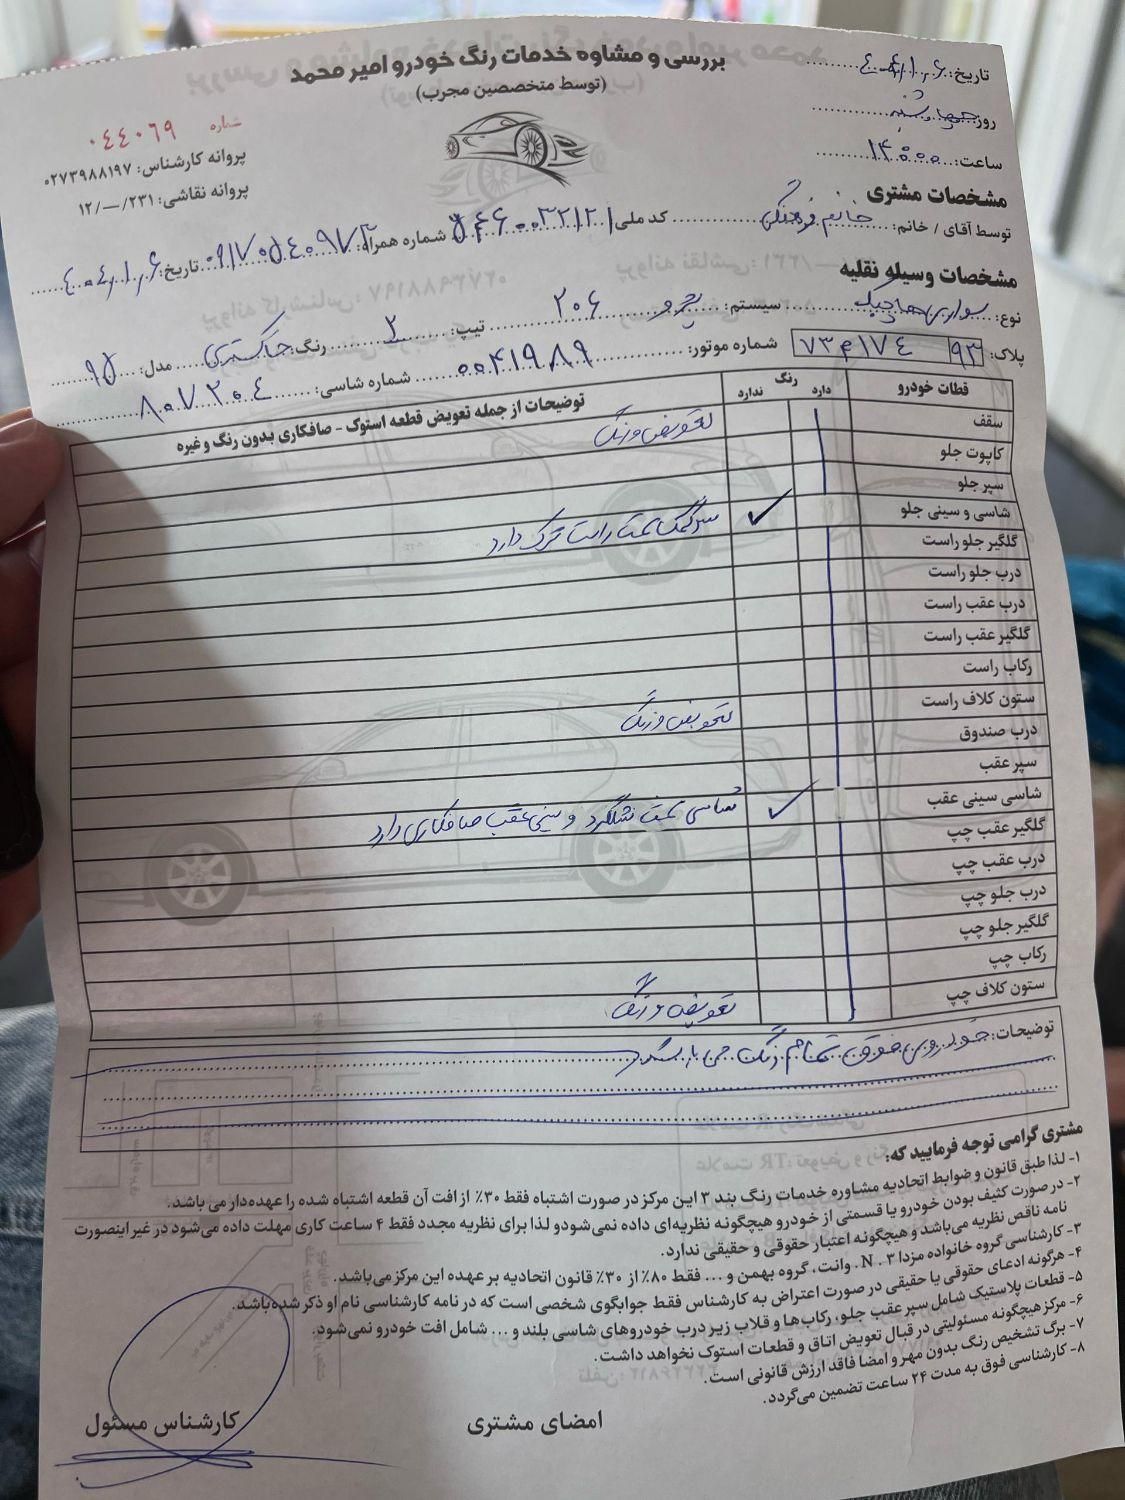 بررسی و مشاوه خدمات رنگ خودرو امیر محمد
(توسط متخصصین مجرب)
تاریخ: ۴۰۴/۱/۶
روز: چهارشنبه
ساعت: ۱۴:۰۰
شماره ۰۴۴۰۶۹
پروانه کارشناس: ۰۲۷۳۹۸۸۱۹۷
پروانه نقاشی: ۲۳۱/—/۱۲
مشخصات مشتری
توسط آقای / خانم: خانم فرهنگی کد ملی شماره همراه: تاریخ: ۴۰۴/۱/۶
مشخصات وسیله نقلیه
نوع: سواری هاچبک سیستم: پژو ۲۰۶ تیپ: ۲ رنگ: خاکستری مدل: ۹۵
پلاک: ۹۳ ۷۳م۱۷۴ شماره موتور: ۰۰۴۱۹۸۹ شماره شاسی: ۸۰۷۲۰۴
قطعات خودرو رنگ دارد ندارد توضیحات از جمله تعویض قطعه استوک - صافکاری بدون رنگ و غیره
سقف
کاپوت جلو تعویض و رنگ
سپر جلو
شاسی و سینی جلو ✓ سرکمک سمت راست ترک دارد
گلگیر جلو راست
درب جلو راست
درب عقب راست
گلگیر عقب راست
رکاب راست
ستون کلاف راست
درب صندوق تعویض و رنگ
سپر عقب
شاسی سینی عقب ✓ شاسی سمت شاگرد و سینی عقب صافکاری دارد
گلگیر عقب چپ
درب عقب چپ
درب جلو چپ
گلگیر جلو چپ
رکاب چپ
ستون کلاف چپ تعویض و رنگ
توضیحات: خودروی فوق تمام رنگ می باشد
مشتری گرامی توجه فرمایید که:
۱- لذا طبق قانون و ضوابط اتحادیه مشاوره خدمات رنگ بند ۳ این مرکز در صورت اشتباه فقط ۳۰٪ از افت آن قطعه اشتباه شده را عهده‌دار می باشد.
۲- در صورت کثیف بودن خودرو یا قسمتی از خودرو هیچگونه نظریه‌ای داده نمی‌شود و لذا برای نظریه مجدد فقط ۴ ساعت کاری مهلت داده می‌شود در غیر اینصورت
نامه ناقص نظریه می‌باشد و هیچگونه اعتبار حقوقی و حقیقی ندارد.
۳- کارشناسی گروه خانواده مزدا ۳ . N . وانت، گروه بهمن و ... فقط ۸۰٪ از ۳۰٪ قانون اتحادیه بر عهده این مرکز می‌باشد.
۴- هرگونه ادعای حقوقی یا حقیقی در صورت اعتراض به کارشناس فقط جوابگوی شخصی است که در نامه کارشناسی نام او ذکر شده‌باشد.
۵- قطعات پلاستیک شامل سپر عقب جلو، رکاب‌ها و قلاب زیر درب خودروهای شاسی بلند و ... شامل افت خودرو نمی‌شود.
۶- مرکز هیچگونه مسئولیتی در قبال تعویض اتاق و قطعات استوک نخواهد داشت.
۷- برگ تشخیص رنگ بدون مهر و امضا فاقد ارزش قانونی است.
۸- کارشناسی فوق به مدت ۲۴ ساعت تضمین می‌گردد.
امضای مشتری
کارشناس مسئول